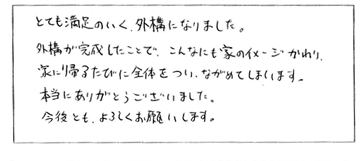 とても満足のいく、外構になりました。
外構が完成したことで、こんなにも家のイメージかわり、
家に帰るたびに全体をつい、ながめてしまいます。
本当にありがとうございました。
今後とも、よろしくお願いします。